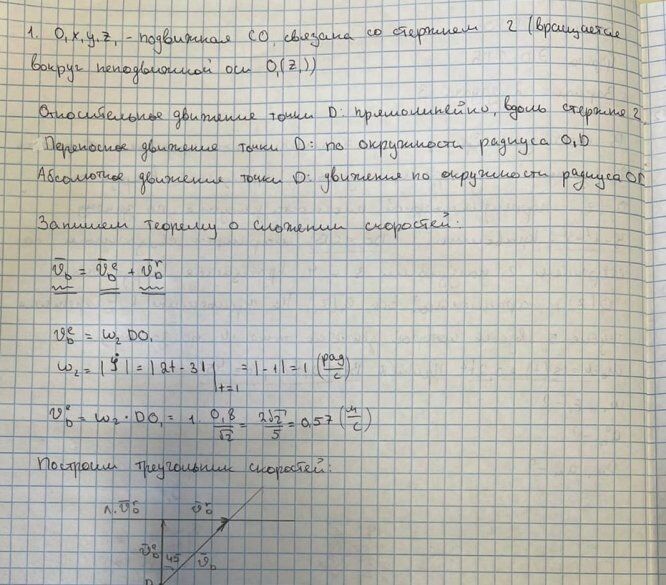 1. O₁x₁y₁z₁ - подвижная СО, связана со стержнем 2 (вращается
вокруг неподвижной оси O₁(z₁))
Относительное движение точки D: прямолинейно, вдоль стержня 2
Переносное движение точки D: по окружности радиуса O₁D
Абсолютное движение точки D: движение по окружности радиуса
Запишем теорему о сложении скоростей:
v̄_D = v̄_D^e + v̄_D^r
v_D^e = ω₂ DO₁
ω₂ = |φ̇| = |2t - 3| |_{t=1} = |-1| = 1 (рад/с)
v_D^e = ω₂ · DO₁ = 1 · 0,8/√2 = 2√2/5 = 0,57 (м/с)
Построим треугольник скоростей:
л. v̄_D^r v̄_D^r
v̄_D^e 45 v̄_D
D